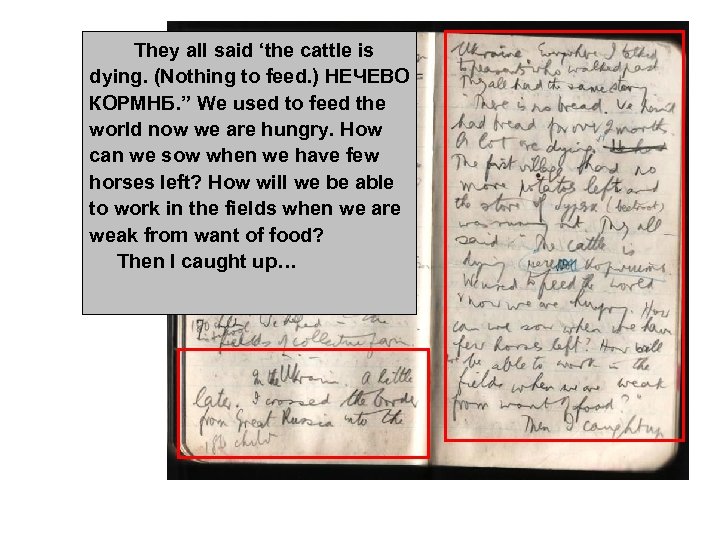 They all said ‘the cattle is
dying. (Nothing to feed.) НЕЧЕВО
КОРМНБ.” We used to feed the
world now we are hungry. How
can we sow when we have few
horses left? How will we be able
to work in the fields when we are
weak from want of food?
Then I caught up…
fields of collective farm.
In the Ukraine. A little
later. I crossed the border
from Great Russia into the
Ukraine. Everywhere I talked
to peasants who walked past
They all had the same story
"There is no bread. We haven't
had bread for over 2 months.
A lot are dying."
The first village had no
more potatoes left and
the store of (beetroot)
was running out. They all
said "The cattle is
dying
We used to feed the world
& now we are hungry. How
can we sow when we have
few horses left? How will
we be able to work in the
fields when we are weak
from want of food?"
Then I caught up